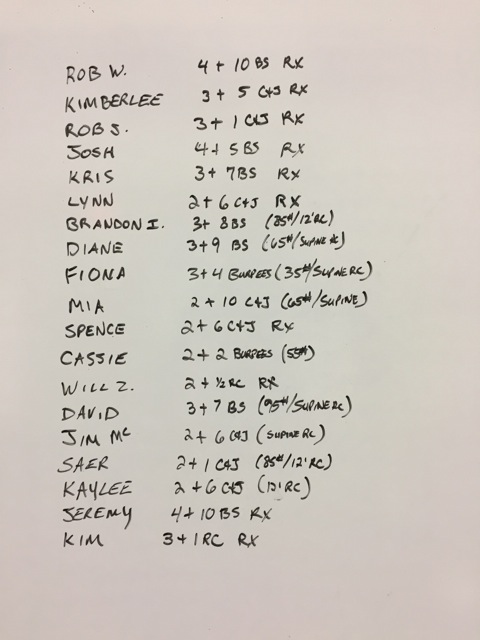 ROB W. 4 + 10 BS RX
KIMBERLEE 3 + 5 C&J RX
ROB S. 3 + 1 C&J RX
JOSH 4 + 5 BS RX
KRIS 3 + 7 BS RX
LYNN 2 + 6 C&J RX
BRANDON I. 3 + 8 BS (85#/12' RC)
DIANE 3 + 9 BS (65#/SUPINE RC)
FIONA 3 + 4 BURPEES (35#/SUPINE RC)
MIA 2 + 10 C&J (65#/SUPINE)
SPENCE 2 + 6 C&J RX
CASSIE 2 + 2 BURPEES (55#)
WILL Z. 2 + ½ RC RX
DAVID 3 + 7 BS (95#/SUPINE RC)
JIM Mc 2 + 6 C&J (SUPINE RC)
SAER 2 + 1 C&J (85#/12' RC)
KAYLEE 2 + 6 C&J (12' RC)
JEREMY 4 + 10 BS RX
KIM 3 + 1 RC RX